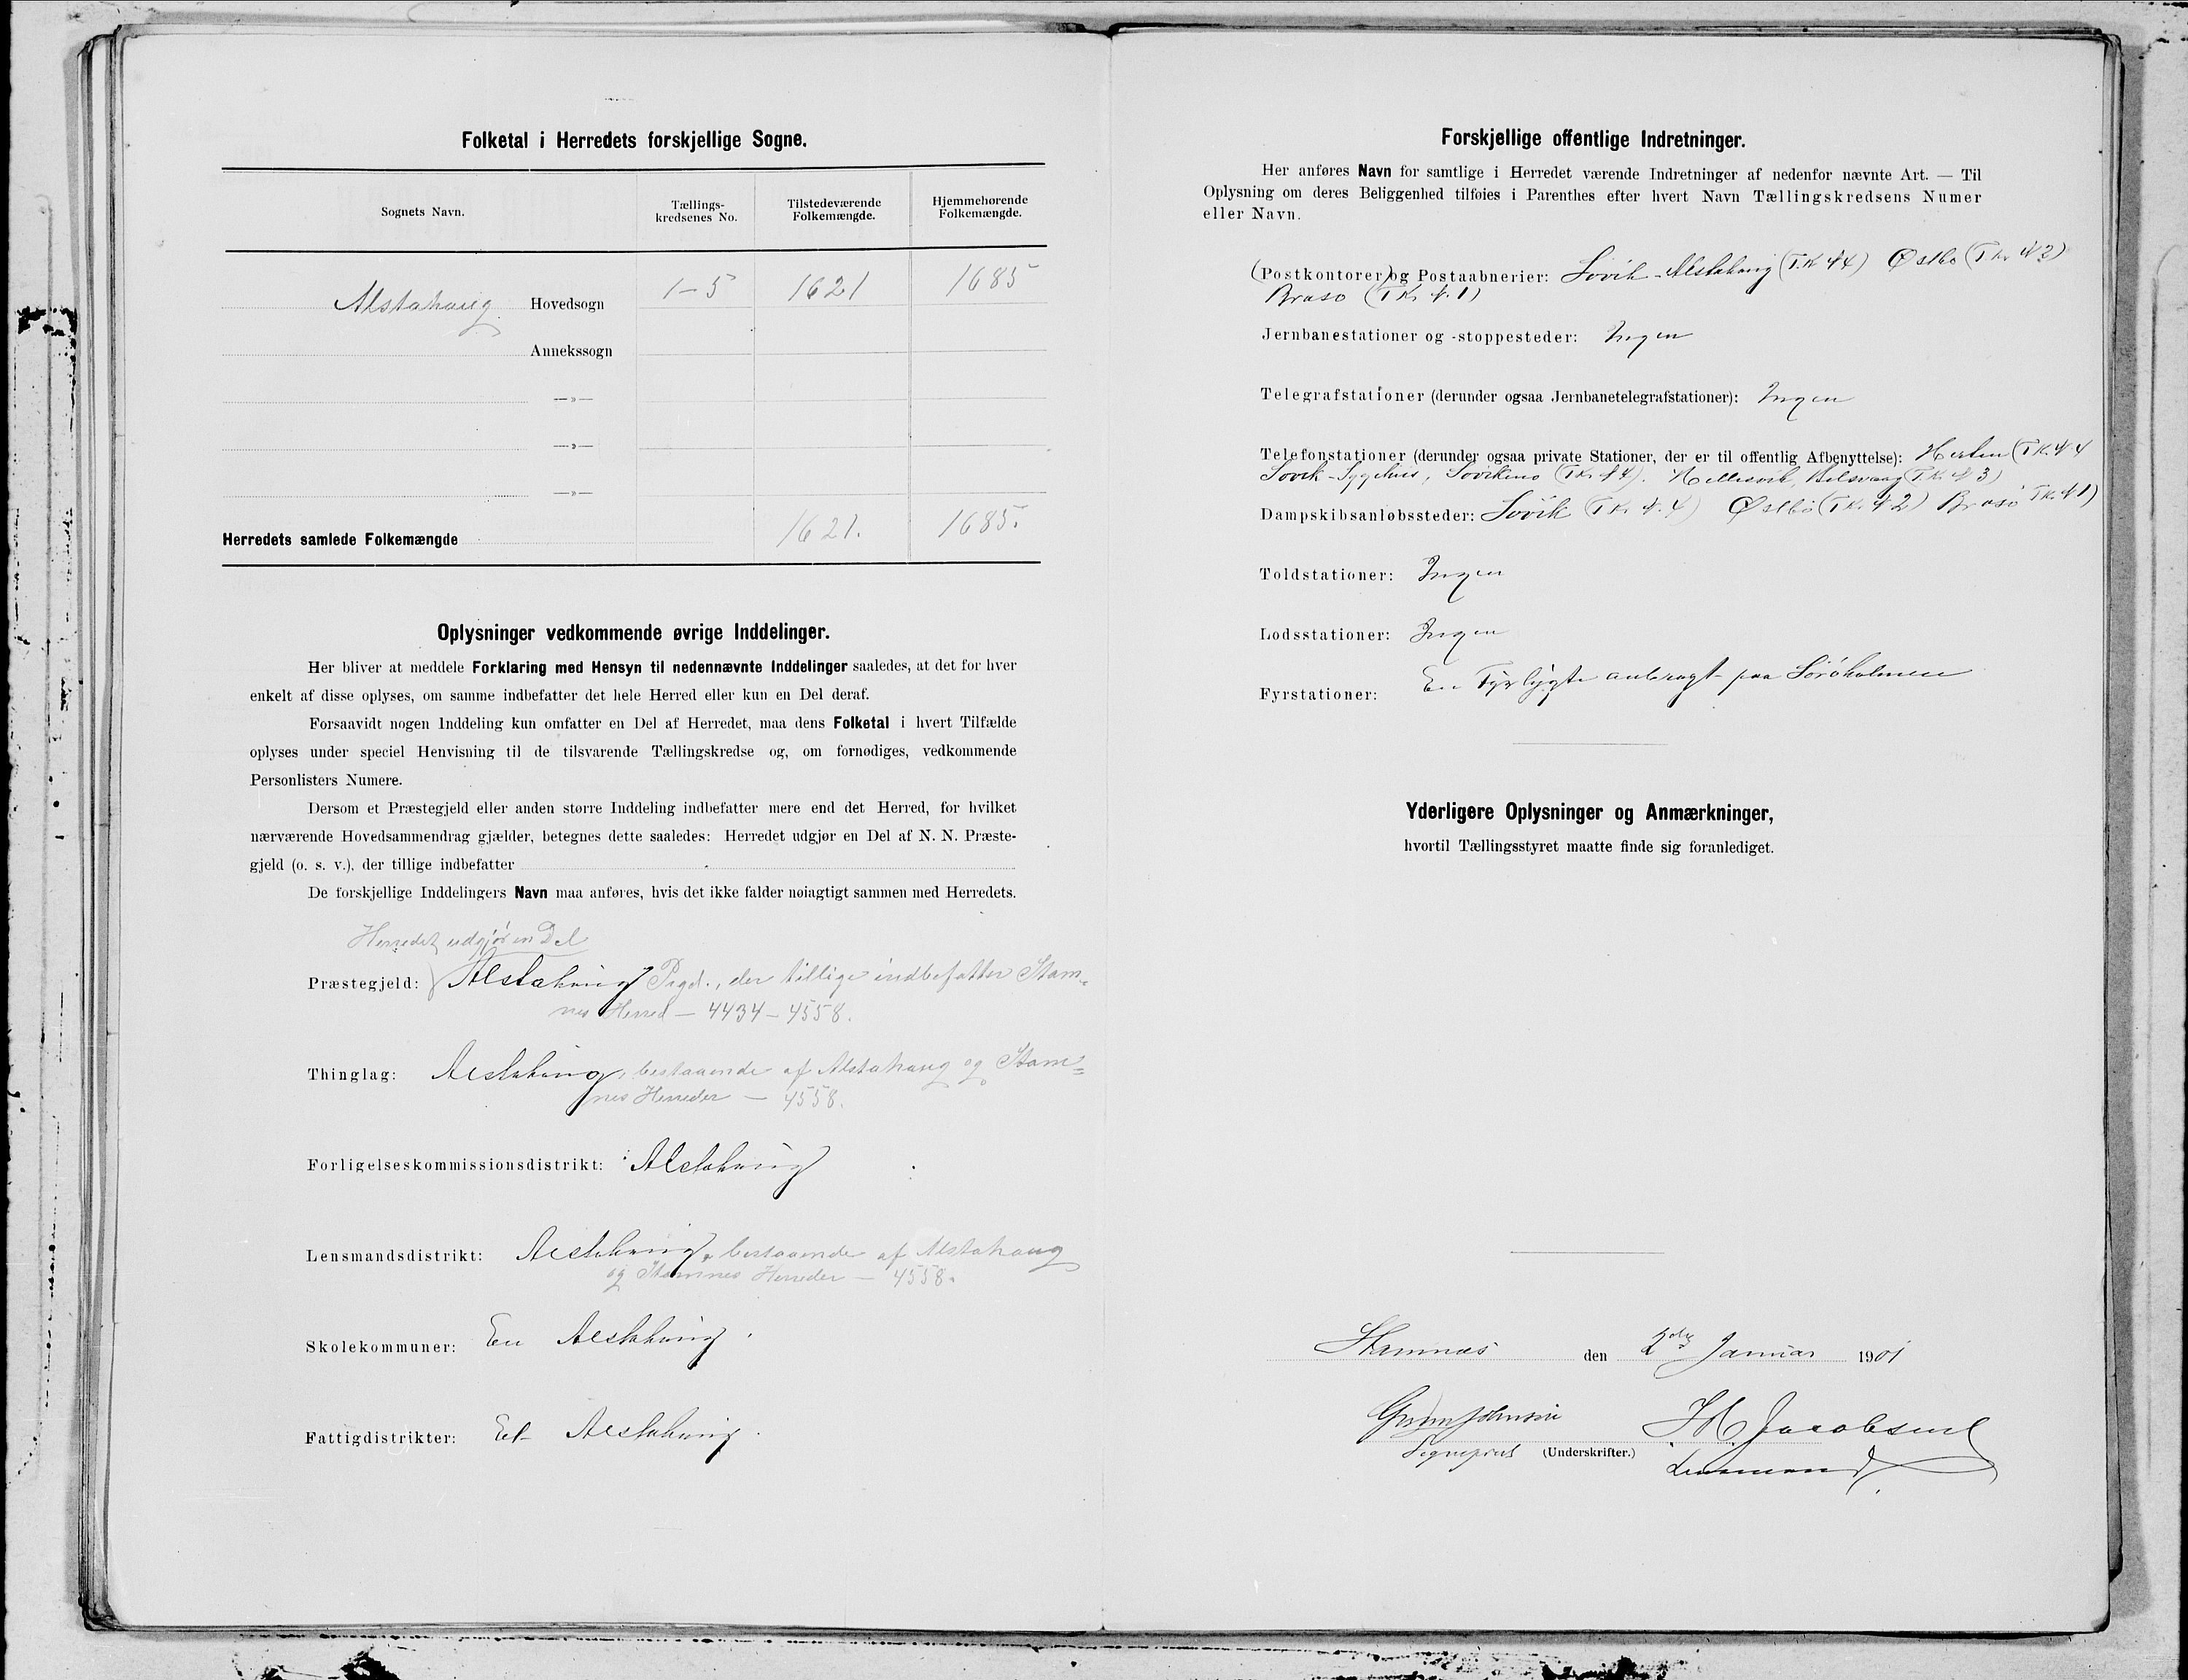 Folketal i Herredets forskjellige Sogne.
Sognets Navn.
Tællings-
kredsenes No.
Tilstedeværende
Folkemængde.
Hjemmehørende
Folkemængde.
Alstahaug Hovedsogn 1-5 1621 1685
Annekssogn
—»—
—»—
—»—
Herredets samlede Folkemængde 1621. 1685.
Oplysninger vedkommende øvrige Inddelinger.
Her bliver at meddele Forklaring med Hensyn til nedennævnte Inddelinger saaledes, at det for hver
enkelt af disse oplyses, om samme indbefatter det hele Herred eller kun en Del deraf.
Forsaavidt nogen Inddeling kun omfatter en Del af Herredet, maa dens Folketal i hvert Tilfælde
oplyses under speciel Henvisning til de tilsvarende Tællingskredse og, om fornødiges, vedkommende
Personlisters Numere.
Dersom et Præstegjeld eller anden større Inddeling indbefatter mere end det Herred, for hvilket
nærværende Hovedsammendrag gjælder, betegnes dette saaledes: Herredet udgjør en Del af N. N. Præste-
gjeld (o. s. v.), der tillige indbefatter
De forskjellige Inddelingers Navn maa anføres, hvis det ikke falder nøiagtigt sammen med Herredets.
Herredet udgjør en Del
Præstegjeld: Alstahaug Prgd., der tillige indbefatter Stam-
nes Herred — 4434 — 4558.
Thinglag: Alstahaug, bestaaende af Alstahaug og Stam=
nes Herreder — 4558.
Forligelseskommissionsdistrikt: Alstahaug
Lensmandsdistrikt: Alstahaug, bestaaende af Alstahaug
og Stamnes Herreder — 4558.
Skolekommuner: En Alstahaug.
Fattigdistrikter: Et Alstahaug.
Forskjellige offentlige Indretninger.
Her anføres Navn for samtlige i Herredet værende Indretninger af nedenfor nævnte Art. — Til
Oplysning om deres Beliggenhed tilføies i Parenthes efter hvert Navn Tællingskredsens Numer
eller Navn.
(Postkontorer) og Postaabnerier: Søvik-Alstahaug (T.K. № 4) Østbø (T.Kr. № 2)
Brasø (T.Kr. №. 1)
Jernbanestationer og -stoppesteder: Ingen
Telegrafstationer (derunder ogsaa Jernbanetelegrafstationer): Ingen
Telefonstationer (derunder ogsaa private Stationer, der er til offentlig Afbenyttelse): (T.K. № 4
Søvik-Sygehus, (T.Kr. № 4). (T.K. № 3)
Dampskibsanløbssteder: Søvik (T.Kr. №. 4) Østbø (T.K. № 2) Brasø T.K. № 1)
Toldstationer: Ingen
Lodsstationer: Ingen
Fyrstationer: En Fyrlygte anbragt paa Sørøholmen
Yderligere Oplysninger og Anmærkninger,
hvortil Tællingsstyret maatte finde sig foranlediget.
Stamnes den 2den Januar 1901
Johnsen Jacobsen
Sogneprest (Underskrifter.) Lensmand